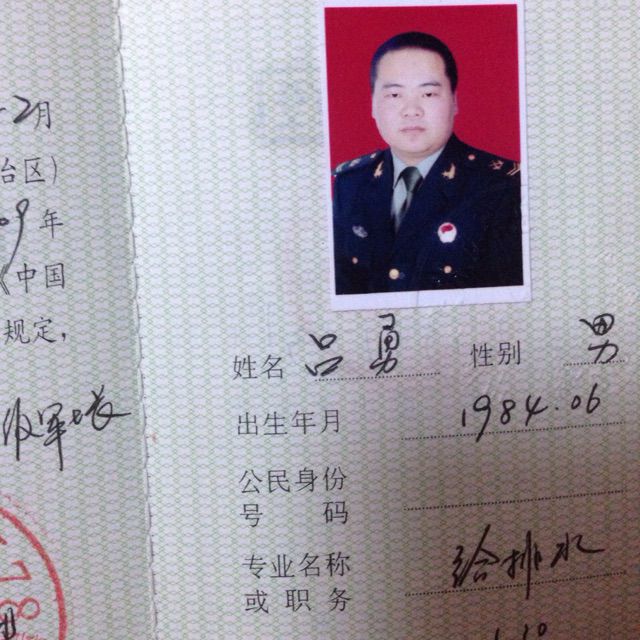 2月
台区)
09年
《中国
规定,
姓名 吕勇 性别 男
出生年月 1984.06
公民身份
号码
专业名称 给排水
或职务